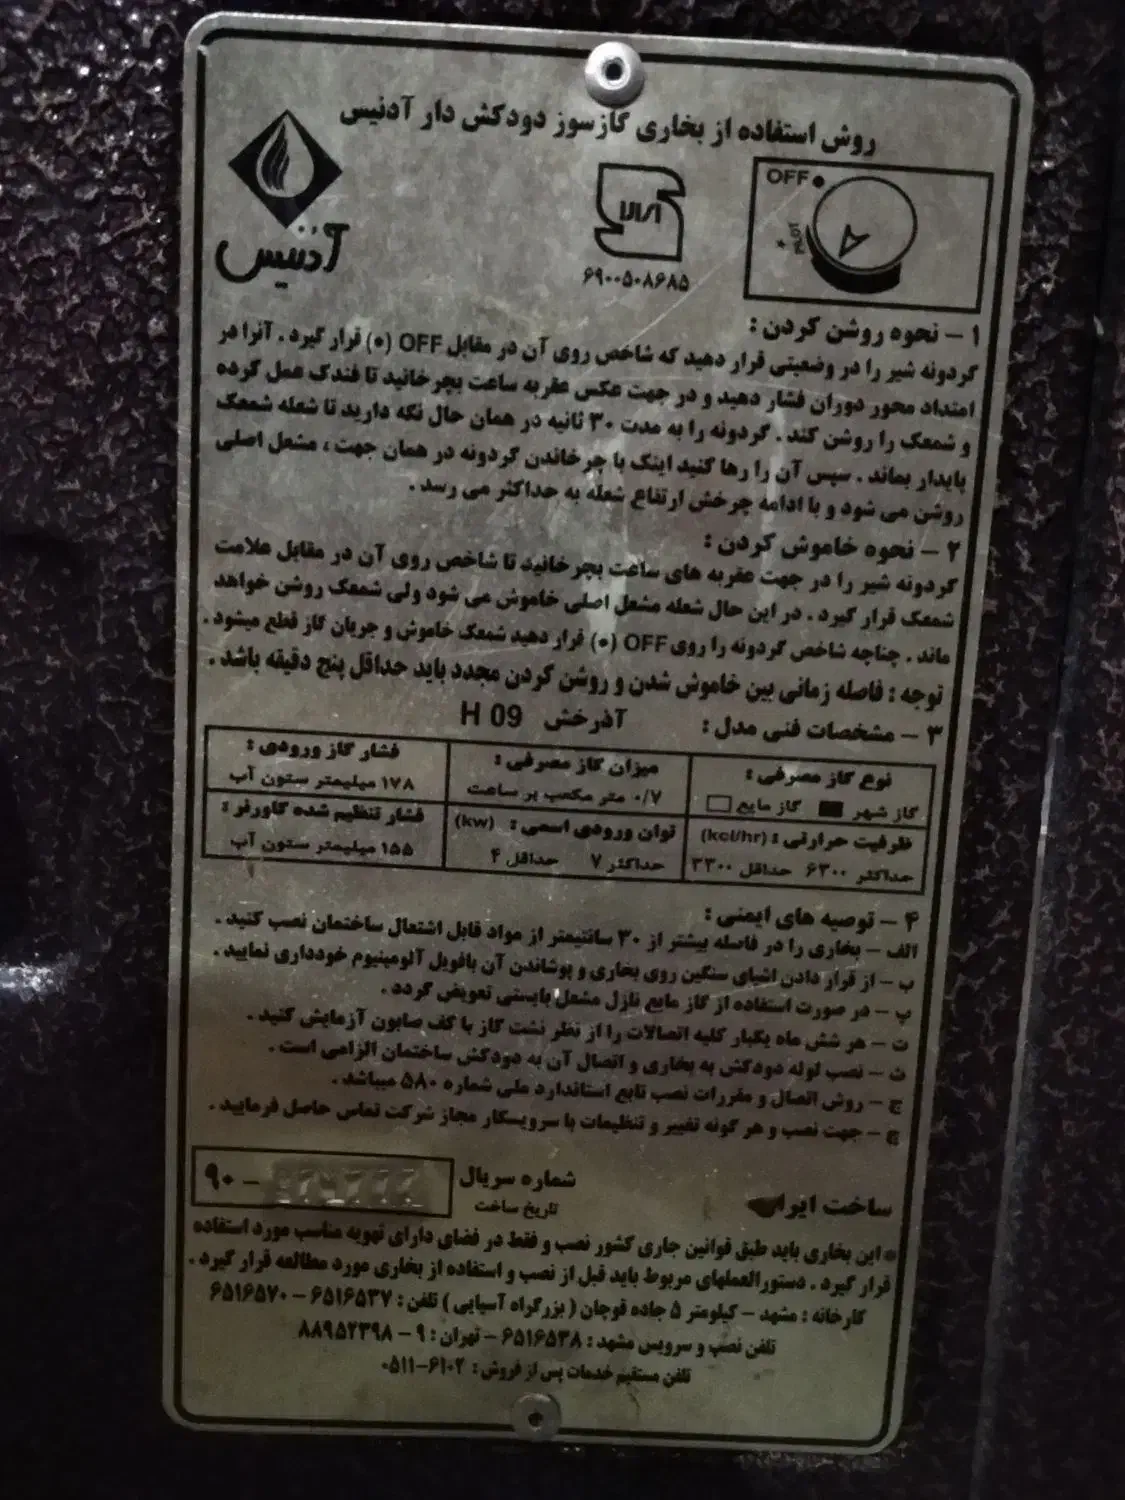 روش استفاده از بخاری گازسوز دودکش دار آدنیس
OFF
PILOT
آدنیس
۶۹۰۰۵۰۸۶۸۵
۱ – نحوه روشن کردن :
گردونه شیر را در وضعیتی قرار دهید که شاخص روی آن در مقابل OFF (•) قرار گیرد . آنرا در
امتداد محور دوران فشار دهید و در جهت عکس عقربه ساعت بچرخانید تا فندک عمل کرده
و شمعک را روشن کند . گردونه را به مدت ۳۰ ثانیه در همان حال نگه دارید تا شعله شمعک
پایدار بماند . سپس آن را رها کنید اینک با چرخاندن گردونه در همان جهت ، مشعل اصلی
روشن می شود و با ادامه چرخش ارتفاع شعله به حداکثر می رسد .
۲ – نحوه خاموش کردن :
گردونه شیر را در جهت عقربه های ساعت بچرخانید تا شاخص روی آن در مقابل علامت
شمعک قرار گیرد . در این حال شعله مشعل اصلی خاموش می شود ولی شمعک روشن خواهد
ماند . چناچه شاخص گردونه را روی OFF (•) قرار دهید شمعک خاموش و جریان گاز قطع میشود .
توجه : فاصله زمانی بین خاموش شدن و روشن کردن مجدد باید حداقل پنج دقیقه باشد .
۳ – مشخصات فنی مدل : آذرخش H 09
نوع گاز مصرفی : میزان گاز مصرفی : فشار گاز ورودی :
گاز شهر گاز مایع ۰/۷ متر مکعب بر ساعت ۱۷۸ میلیمتر ستون آب
ظرفیت حرارتی : (kcl/hr) توان ورودی اسمی : (kw) فشار تنظیم شده گاورنر :
حداکثر ۶۳۰۰ حداقل ۳۳۰۰ حداکثر ۷ حداقل ۴ ۱۵۵ میلیمتر ستون آب
۴ – توصیه های ایمنی :
الف – بخاری را در فاصله بیشتر از ۳۰ سانتیمتر از مواد قابل اشتعال ساختمان نصب کنید .
ب – از قرار دادن اشیای سنگین روی بخاری و پوشاندن آن بافویل آلومینیوم خودداری نمایید .
پ – در صورت استفاده از گاز مایع نازل مشعل بایستی تعویض گردد .
ت – هر شش ماه یکبار کلیه اتصالات را از نظر نشت گاز با کف صابون آزمایش کنید .
ث – نصب لوله دودکش به بخاری و اتصال آن به دودکش ساختمان الزامی است .
ج – روش اتصال و مقررات نصب تابع استاندارد ملی شماره ۵۸۰ میباشد .
چ – جهت نصب و هر گونه تغییر و تنظیمات با سرویسکار مجاز شرکت تماس حاصل فرمایید .
ساخت ایران شماره سریال ۹۰ –
تاریخ ساخت
* این بخاری باید طبق قوانین جاری کشور نصب و فقط در فضای دارای تهویه مناسب مورد استفاده
قرار گیرد . دستورالعملهای مربوط باید قبل از نصب و استفاده از بخاری مورد مطالعه قرار گیرد .
کارخانه : مشهد – کیلومتر ۵ جاده قوچان ( بزرگراه آسیایی ) تلفن : ۶۵۱۶۵۳۷ – ۶۵۱۶۵۷۰
تلفن نصب و سرویس مشهد : ۶۵۱۶۵۳۸ – تهران : ۹ – ۸۸۹۵۲۳۹۸
تلفن مستقیم خدمات پس از فروش : ۶۱۰۲–۰۵۱۱